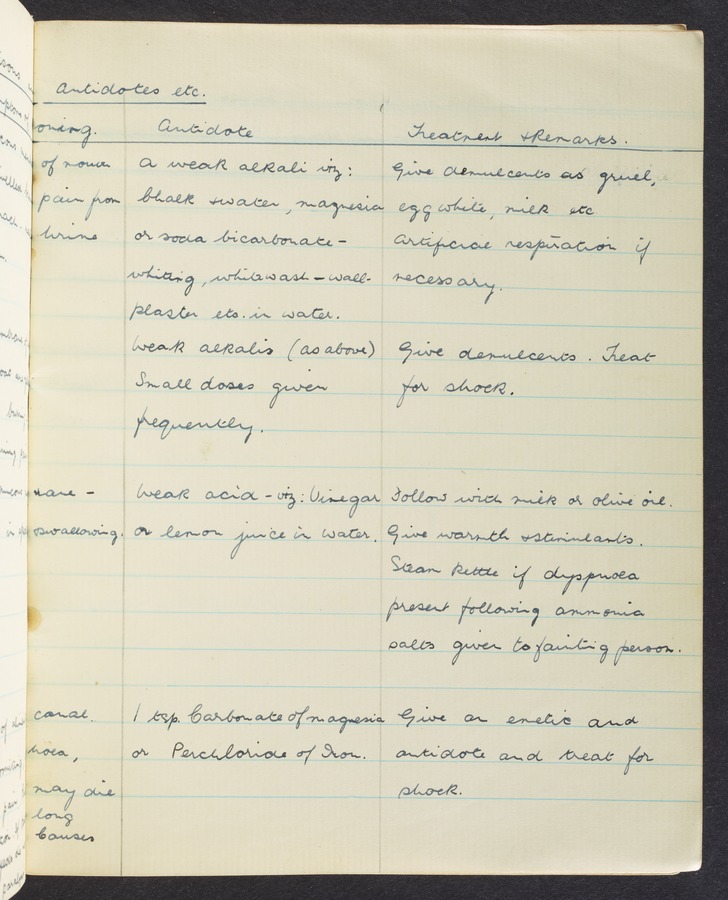 Antidotes etc.
Antidote
Treatment & Remarks.
of mouth
a weak alkali viz:
Give demulcents as gruel,
pain from
Chalk & water, magnesia
egg white, milk etc
urine
or soda bicarbonate -
Artificial respiration if
whiting, whitewash - wall-
necessary.
plaster ets. in water.
Weak alkalis (as above)
Give demulcents. Treat
Small doses given
for shock.
frequently.
Weak acid - viz: Vinegar
Follow with milk or olive oil.
swallowing.
or lemon juice in water.
Give warmth & stimulants.
Steam kettle if dyspnoea
present following ammonia
salts given to fainting person.
canal.
1 tsp. Carbonate of magnesia
Give an emetic and
or Perchloride of Iron.
antidote and treat for
may die
shock.
long
Causes